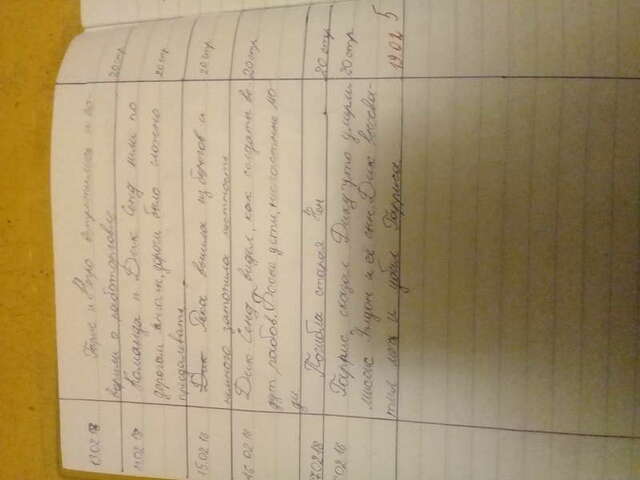 13.02.18 Гарис и Негро встретились и го-
ворили о работорговле 20 стр
14.02.18 Команда и Дик Сенд шли по
дорогам Анголы, дороги было сложно 20 стр
преодалевать.
15.02.18 Дик Река вышла из берегов и 20 стр
немного затопила местность
16.02.18 Дик Сенд видел, как солдаты ве- 20 стр
дут рабов. Босые дети, несчастные лю-
ди.
17.02.18 Погибла старая Нен 20 стр
Гаррис сказал Дику что умерли 20 стр
миссис Уэлдон и её сын. Дик выхва-
тил нож и убил Гарриса. 19.02 5